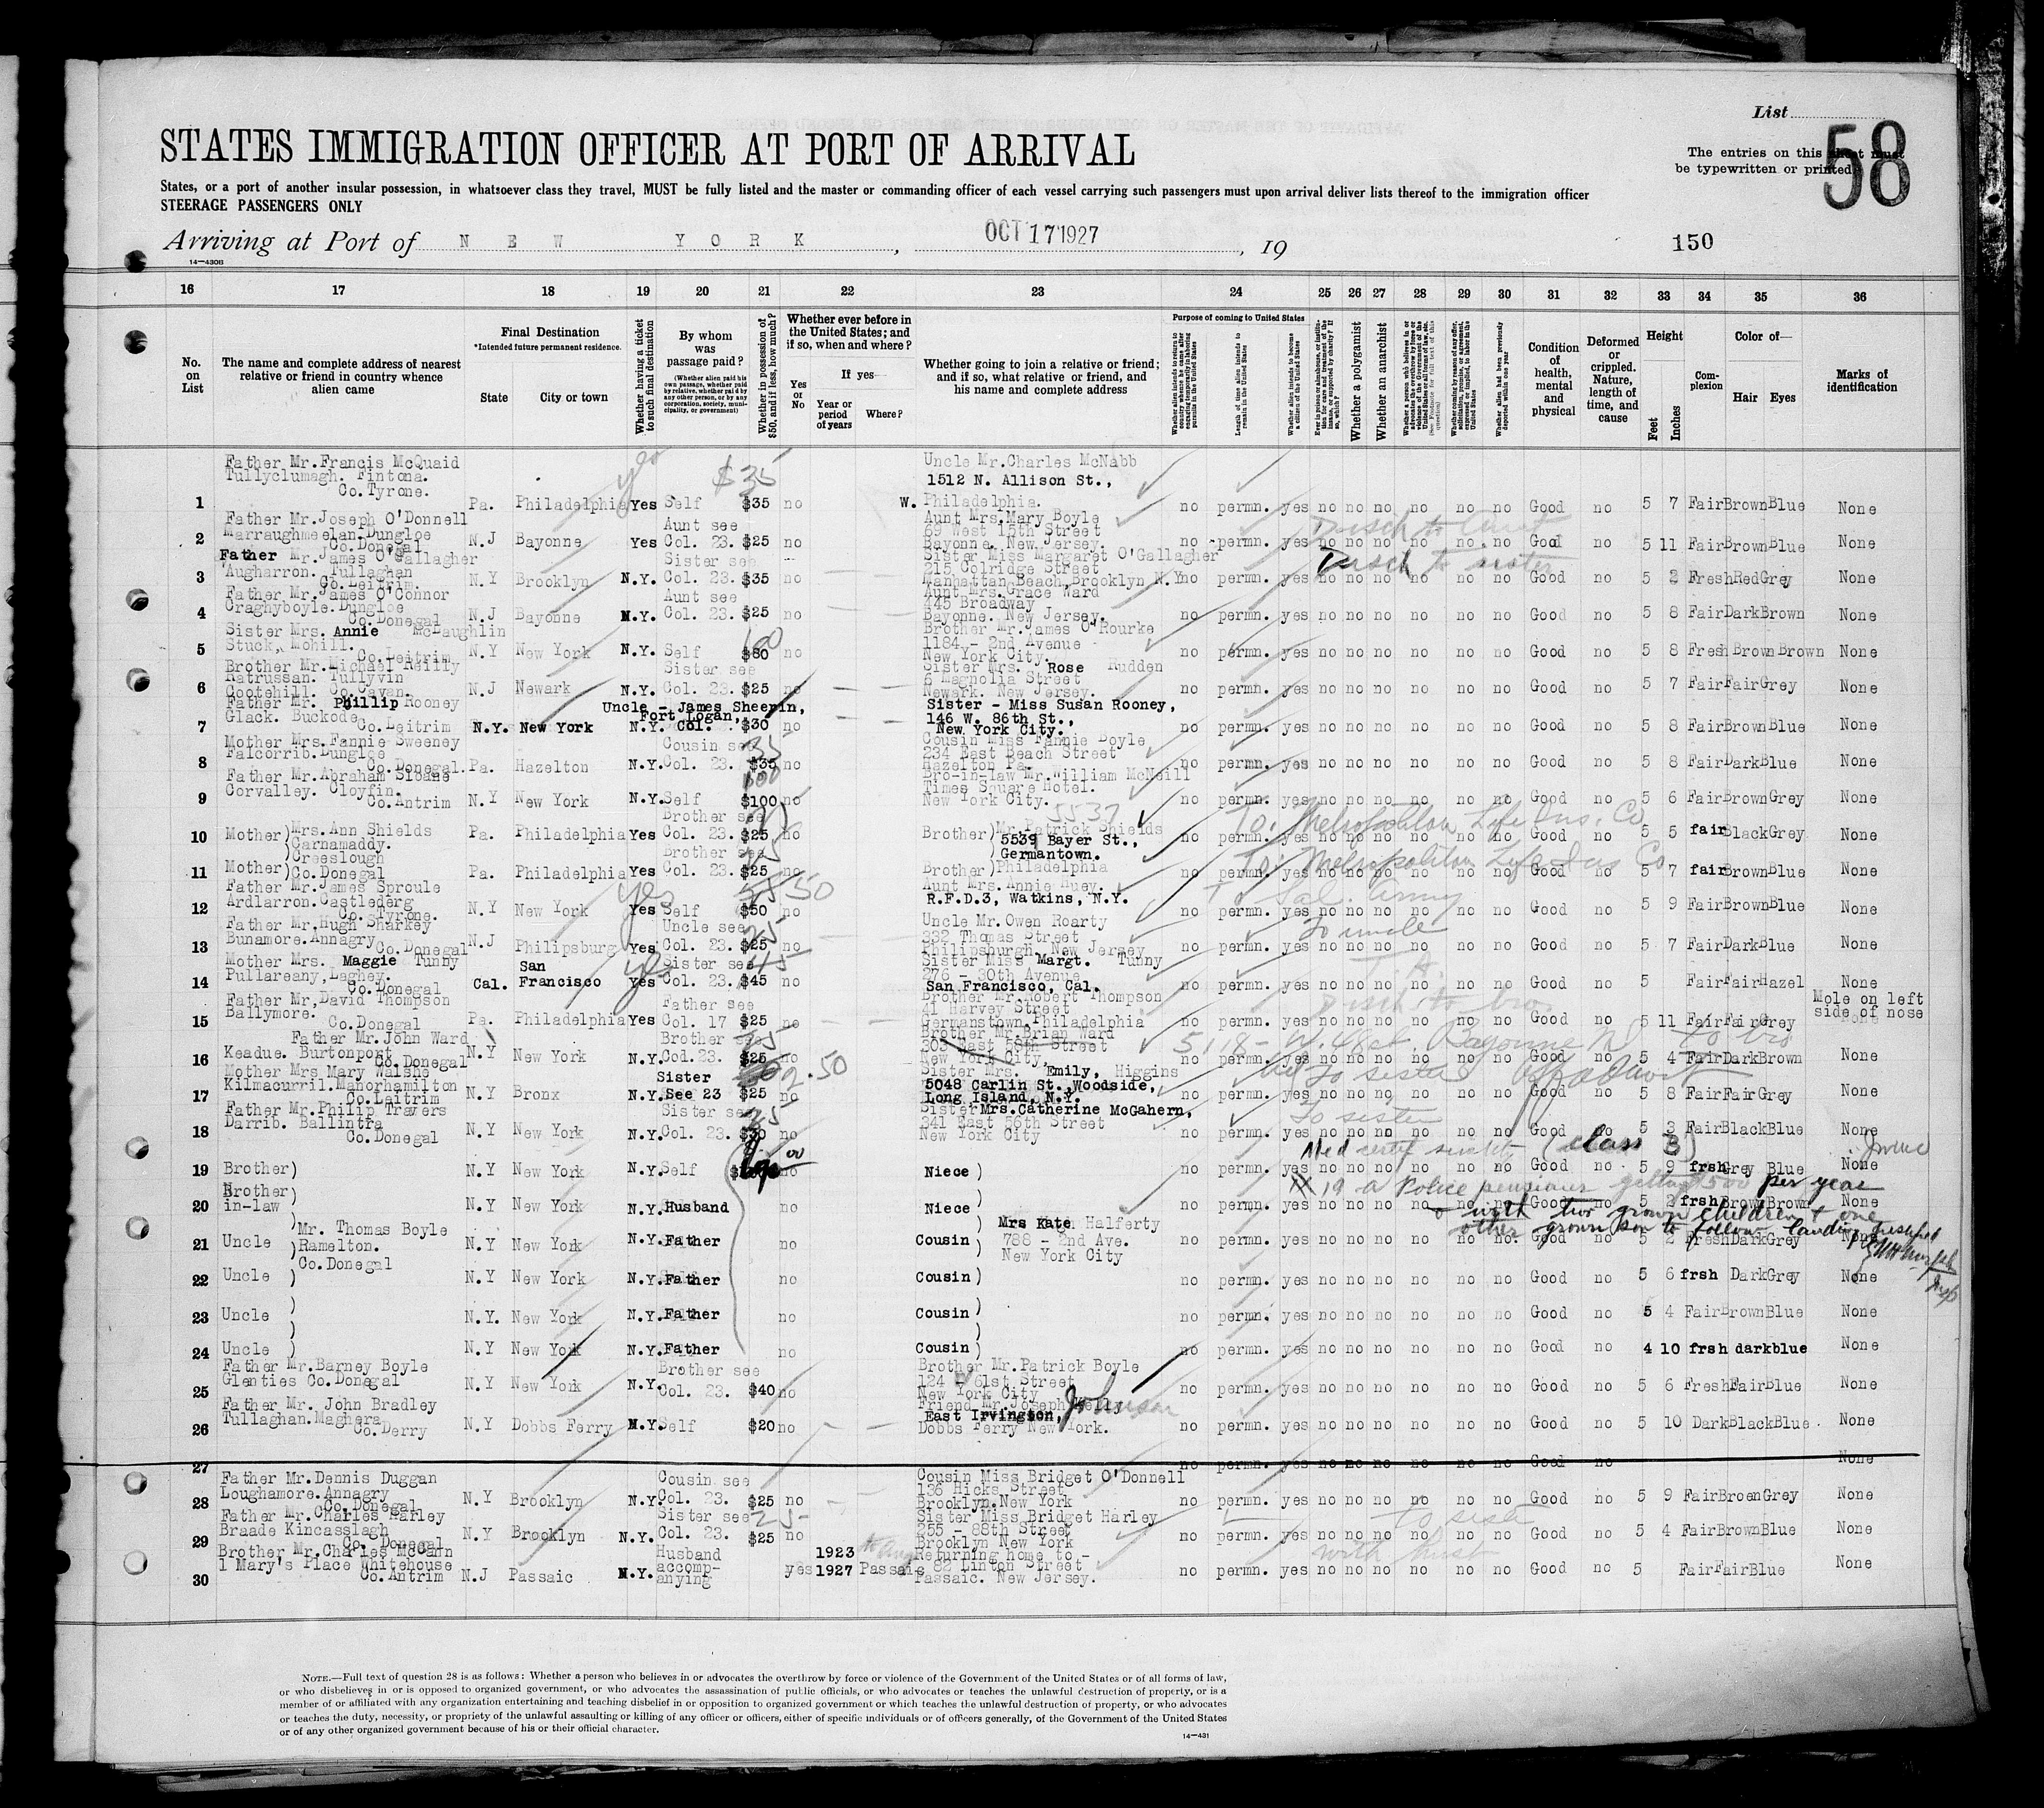 List
58
The entries on this sheet must
be typewritten or printed
STATES IMMIGRATION OFFICER AT PORT OF ARRIVAL
States, or a port of another insular possession, in whatsoever class they travel, MUST be fully listed and the master or commanding officer of each vessel carrying such passengers must upon arrival deliver lists thereof to the immigration officer
STEERAGE PASSENGERS ONLY
Arriving at Port of NEW YORK, OCT 17 1927, 19
150
14—430B
16 17 18 19 20 21 22 23 24 25 26 27 28 29 30 31 32 33 34 35 36
No. on List
The name and complete address of nearest relative or friend in country whence alien came
Final Destination
*Intended future permanent residence.
State City or town
Whether having a ticket to such final destination
By whom was passage paid?
(Whether alien paid his own passage, whether paid by relative, whether paid by any other person, or by any corporation, society, municipality, or government)
Whether in possession of $50, and if less, how much?
Whether ever before in the United States; and if so, when and where?
Yes or No
If yes—
Year or period of years
Where?
Whether going to join a relative or friend; and if so, what relative or friend, and his name and complete address
Purpose of coming to United States
Whether alien intends to return to country whence he came after engaging temporarily in laboring pursuits in the United States
Length of time alien intends to remain in the United States
Whether alien intends to become a citizen of the United States
Whether a polygamist
Whether an anarchist
Whether alien had been previously deported within one year
Condition of health, mental and physical
Deformed or crippled. Nature, length of time, and cause
Height
Feet Inches
Complexion
Color of—
Hair Eyes
Marks of identification
Father Mr.Francis McQuaid
Tullyclumagh. Fintona.
Co.Tyrone.
Uncle Mr.Charles McNabb
1512 N. Allison St.,
1 Pa. Philadelphia Yes Self $35 no W. Philadelphia. no permn. yes no no no no no no Good no 5 7 Fair Brown Blue None
Father Mr.Joseph O'Donnell
Marraughmeelan.Dungloe
Co.Donegal
Aunt Mrs.Mary Boyle
69 West 15th Street
Bayonne. New Jersey.
2 N.J Bayonne Yes Aunt see Col. 23. $25 no no permn. yes no no no no no no Good no 5 11 Fair Brown Blue None
Father Mr.James O'Gallagher
Augharron. Tullaghan
Co.Leitrim.
Sister Miss Margaret O'Gallagher
215 Colridge Street
Manhattan Beach,Brooklyn N.Y
3 N.Y Brooklyn N.Y. Sister see Col. 23. $35 no no permn. yes no no no no no no Good no 5 2 Fresh Red Grey None
Father Mr.James O'Connor
Craghyboyle.Dungloe
Co.Donegal
Aunt Mrs.Grace Ward
445 Broadway
Bayonne. New Jersey.
4 N.J Bayonne N.Y. Aunt see Col. 23. $25 no no permn. yes no no no no no no Good no 5 8 Fair Dark Brown None
Sister Mrs. Annie McLaughlin
Stuck, Mohill.
Co.Leitrim
Brother Mr.James O'Rourke
1184 - 2nd Avenue
New York City.
5 N.Y New York N.Y. Self $80 no no permn. yes no no no no no no Good no 5 8 Fresh Brown Brown None
Brother Mr.Michael Reilly
Ratrussan. Tullyvin
Cootehill. Co.Cavan.
Sister Mrs. Rose Rudden
6 Magnolia Street
Newark. New Jersey.
6 N.J Newark N.Y. Sister see Col. 23. $25 no no permn. yes no no no no no no Good no 5 7 Fair Fair Grey None
Father Mr. Phillip Rooney
Glack. Buckode
Co.Leitrim
Uncle - James Sheerin,
Fort Logan,
Col.
Sister - Miss Susan Rooney,
146 W. 86th St.,
New York City.
7 N.Y. New York N.Y. $30 no no permn. yes no no no no no no Good no 5 8 Fair Brown Blue None
Mother Mrs.Fannie Sweeney
Falcorrib.Dungloe
Co.Donegal.
Cousin Miss Fannie Boyle
234 East Beach Street
Hazelton Pa.
8 Pa. Hazelton N.Y. Cousin see Col. 23. $35 no no permn. yes no no no no no no Good no 5 8 Fair Dark Blue None
Father Mr.Abraham Sloane
Corvalley. Cloyfin.
Co.Antrim
Bro-in-law Mr.William McNeill
Times Square Hotel.
New York City.
9 N.Y New York N.Y. Self $100 no no permn. yes no no no no no no Good no 5 6 Fair Brown Grey None
To: Metropolitan Life Ins. Co
10 Mother) Mrs.Ann Shields
Carnamaddy.
Creeslough
Pa. Philadelphia Yes Brother see Col. 23. $25 no Brother) Mr.Patrick Shields
5539 Bayer St.,
Germantown.
no permn. yes no no no no no no Good no 5 5 fair Black Grey None
To: Metropolitan Life Ins Co
11 Mother) Co.Donegal Pa. Philadelphia Yes Brother see Col. 23. $25 no Brother) Philadelphia no permn. yes no no no no no no Good no 5 7 fair Brown Blue None
Father Mr.James Sproule
Ardlarron.Castlederg
Co. Tyrone.
Aunt Mrs. Annie Huey.
R.F.D.3, Watkins, N.Y.
To Sal. Army
12 N.Y New York Yes Self $50 no no permn. yes no no no no no no Good no 5 9 Fair Brown Blue None
Father Mr,Hugh Sharkey
Bunamore.Annagry
Co.Donegal
Uncle Mr.Owen Roarty
332 Thomas Street
Philipsburgh. New Jersey
To uncle
13 N.J Philipsburg Yes Uncle see Col. 23. $25 no no permn. yes no no no no no no Good no 5 7 Fair Dark Blue None
Mother Mrs. Maggie Tunny
Pullareany,Laghey.
Co.Donegal
Sister Miss Margt. Tunny
276 - 30th Avenue
San Francisco, Cal.
14 Cal. San Francisco Yes Sister see Col. 23. $45 no no permn. yes no no no no no no Good no 5 Fair Fair Hazel None
Father Mr,David Thompson
Ballymore.
Co.Donegal
Brother Mr.Robert Thompson
41 Harvey Street
Germanstown.Philadelphia
15 Pa. Philadelphia Yes Father see Col. 17 $25 no no permn. yes no no no no no no Good no 5 11 Fair Fair Grey Mole on left side of nose
Father Mr.John Ward
Keadue. Burtonport
Co.Donegal
Brother Mr.Brian Ward
303 East 56th Street
New York City.
16 N.Y New York N.Y. Brother see Cod.23. $25 no no permn. yes no no no no no no Good no 5 4 Fair Dark Brown None
Mother Mrs.Mary Walshe
Kilmacurril.Manorhamilton
Co.Leitrim
Sister Mrs. Emily, Higgins
5048 Carlin St.,Woodside,
Long Island, N.Y.
To sister
17 N.Y Bronx N.Y. Sister See 23 $25 no no permn. yes no no no no no no Good no 5 8 Fair Fair Grey None
Father Mr.Philip Travers
Darrib. Ballintra
Co.Donegal
Sister Mrs.Catherine McGahern,
341 East 56th Street
New York City
To sister
18 N.Y New York N.Y. Sister see Col. 23. $30 no no permn. yes no no no no no no Good no 5 3 Fair Black Blue None
(class B)
19 Brother) N.Y New York N.Y. Self no Niece) no permn. yes no no no no no no Good no 5 9 frsh Grey Blue None
19 a Police pensioner getting $500 per year
20 Brother in-law) N.Y New York N.Y. Husband no Niece) no permn. yes no no no no no no Good no 5 2 frsh Brown Brown None
with two grown children & one
other grown son to follow.
Mr. Thomas Boyle
Ramelton.
Co.Donegal
Mrs Kate Halferty
788 - 2nd Ave.
New York City
21 Uncle ) N.Y New York N.Y. Father no Cousin) no permn. yes no no no no no no. Good no 5 2 Fresh Dark Grey None
22 Uncle ) N.Y New York N.Y. Father no Cousin) no permn. yes no no no no no no Good no 5 6 frsh Dark Grey None
23 Uncle ) N.Y. New York N.Y. Father no Cousin) no permn. yes no no no no no no Good no 5 4 Fair Brown Blue None
24 Uncle ) N.Y New York N.Y. Father no Cousin) no permn. yes no no no no no no Good no 4 10 frsh dark blue None
Father Mr.Barney Boyle
Glenties Co.Donegal
Brother Mr.Patrick Boyle
124 W 61st Street
New York City
25 N.Y New York N.Y. Brother see Col. 23. $40 no no permn. yes no no no no no no Good no 5 6 Fresh Fair Blue None
Father Mr. John Bradley
Tullaghan.Maghera
Co.Derry
Friend Mr.Joseph Johnson
East Irvington,
Dobbs Ferry New York.
26 N.Y Dobbs Ferry N.Y. Self $20 no no permn. yes no no no no no no Good no 5 10 Dark Black Blue. None
27 no permn. yes no no no no no no Good no None
Father Mr.Dennis Duggan
Loughamore.Annagry
Co.Donegal
Cousin Miss Bridget O'Donnell
136 Hicks Street.
Brooklyn.New York
28 N.Y Brooklyn N.Y. Cousin see Col. 23. $25 no no permn. yes no no no no no no Good no 5 9 Fair Broen Grey None
Father Mr.Charles Harley
Braade Kincasslagh
Co. Donegal
Sister Miss Bridget Harley
355 - 88th Street
Brooklyn New York
29 N.Y Brooklyn N.Y. Sister see Col. 23. $25 no no permn. yes no no no no no no Good no 5 4 Fair Brown Blue None
Brother Mr.Charles McCann
1 Mary's Place Whitehouse
Co.Antrim
Returning home to -
82 Linton Street
Passaic. New Jersey.
30 N.J Passaic N.Y. Husband accomp-anying yes 1923 1927 Passaic no permn. yes no no no no no no Good no 5 Fair Fair Blue None
NOTE.—Full text of question 28 is as follows: Whether a person who believes in or advocates the overthrow by force or violence of the Government of the United States or of all forms of law,
or who disbelieves in or is opposed to organized government, or who advocates the assassination of public officials, or who advocates or teaches the unlawful destruction of property, or is a
member of or affiliated with any organization entertaining and teaching disbelief in or opposition to organized government or which teaches the unlawful destruction of property, or who advocates
or teaches the duty, necessity, or propriety of the unlawful assaulting or killing of any officer or officers, either of specific individuals or of officers generally, of the Government of the United States
or of any other organized government because of his or their official character.
14—431